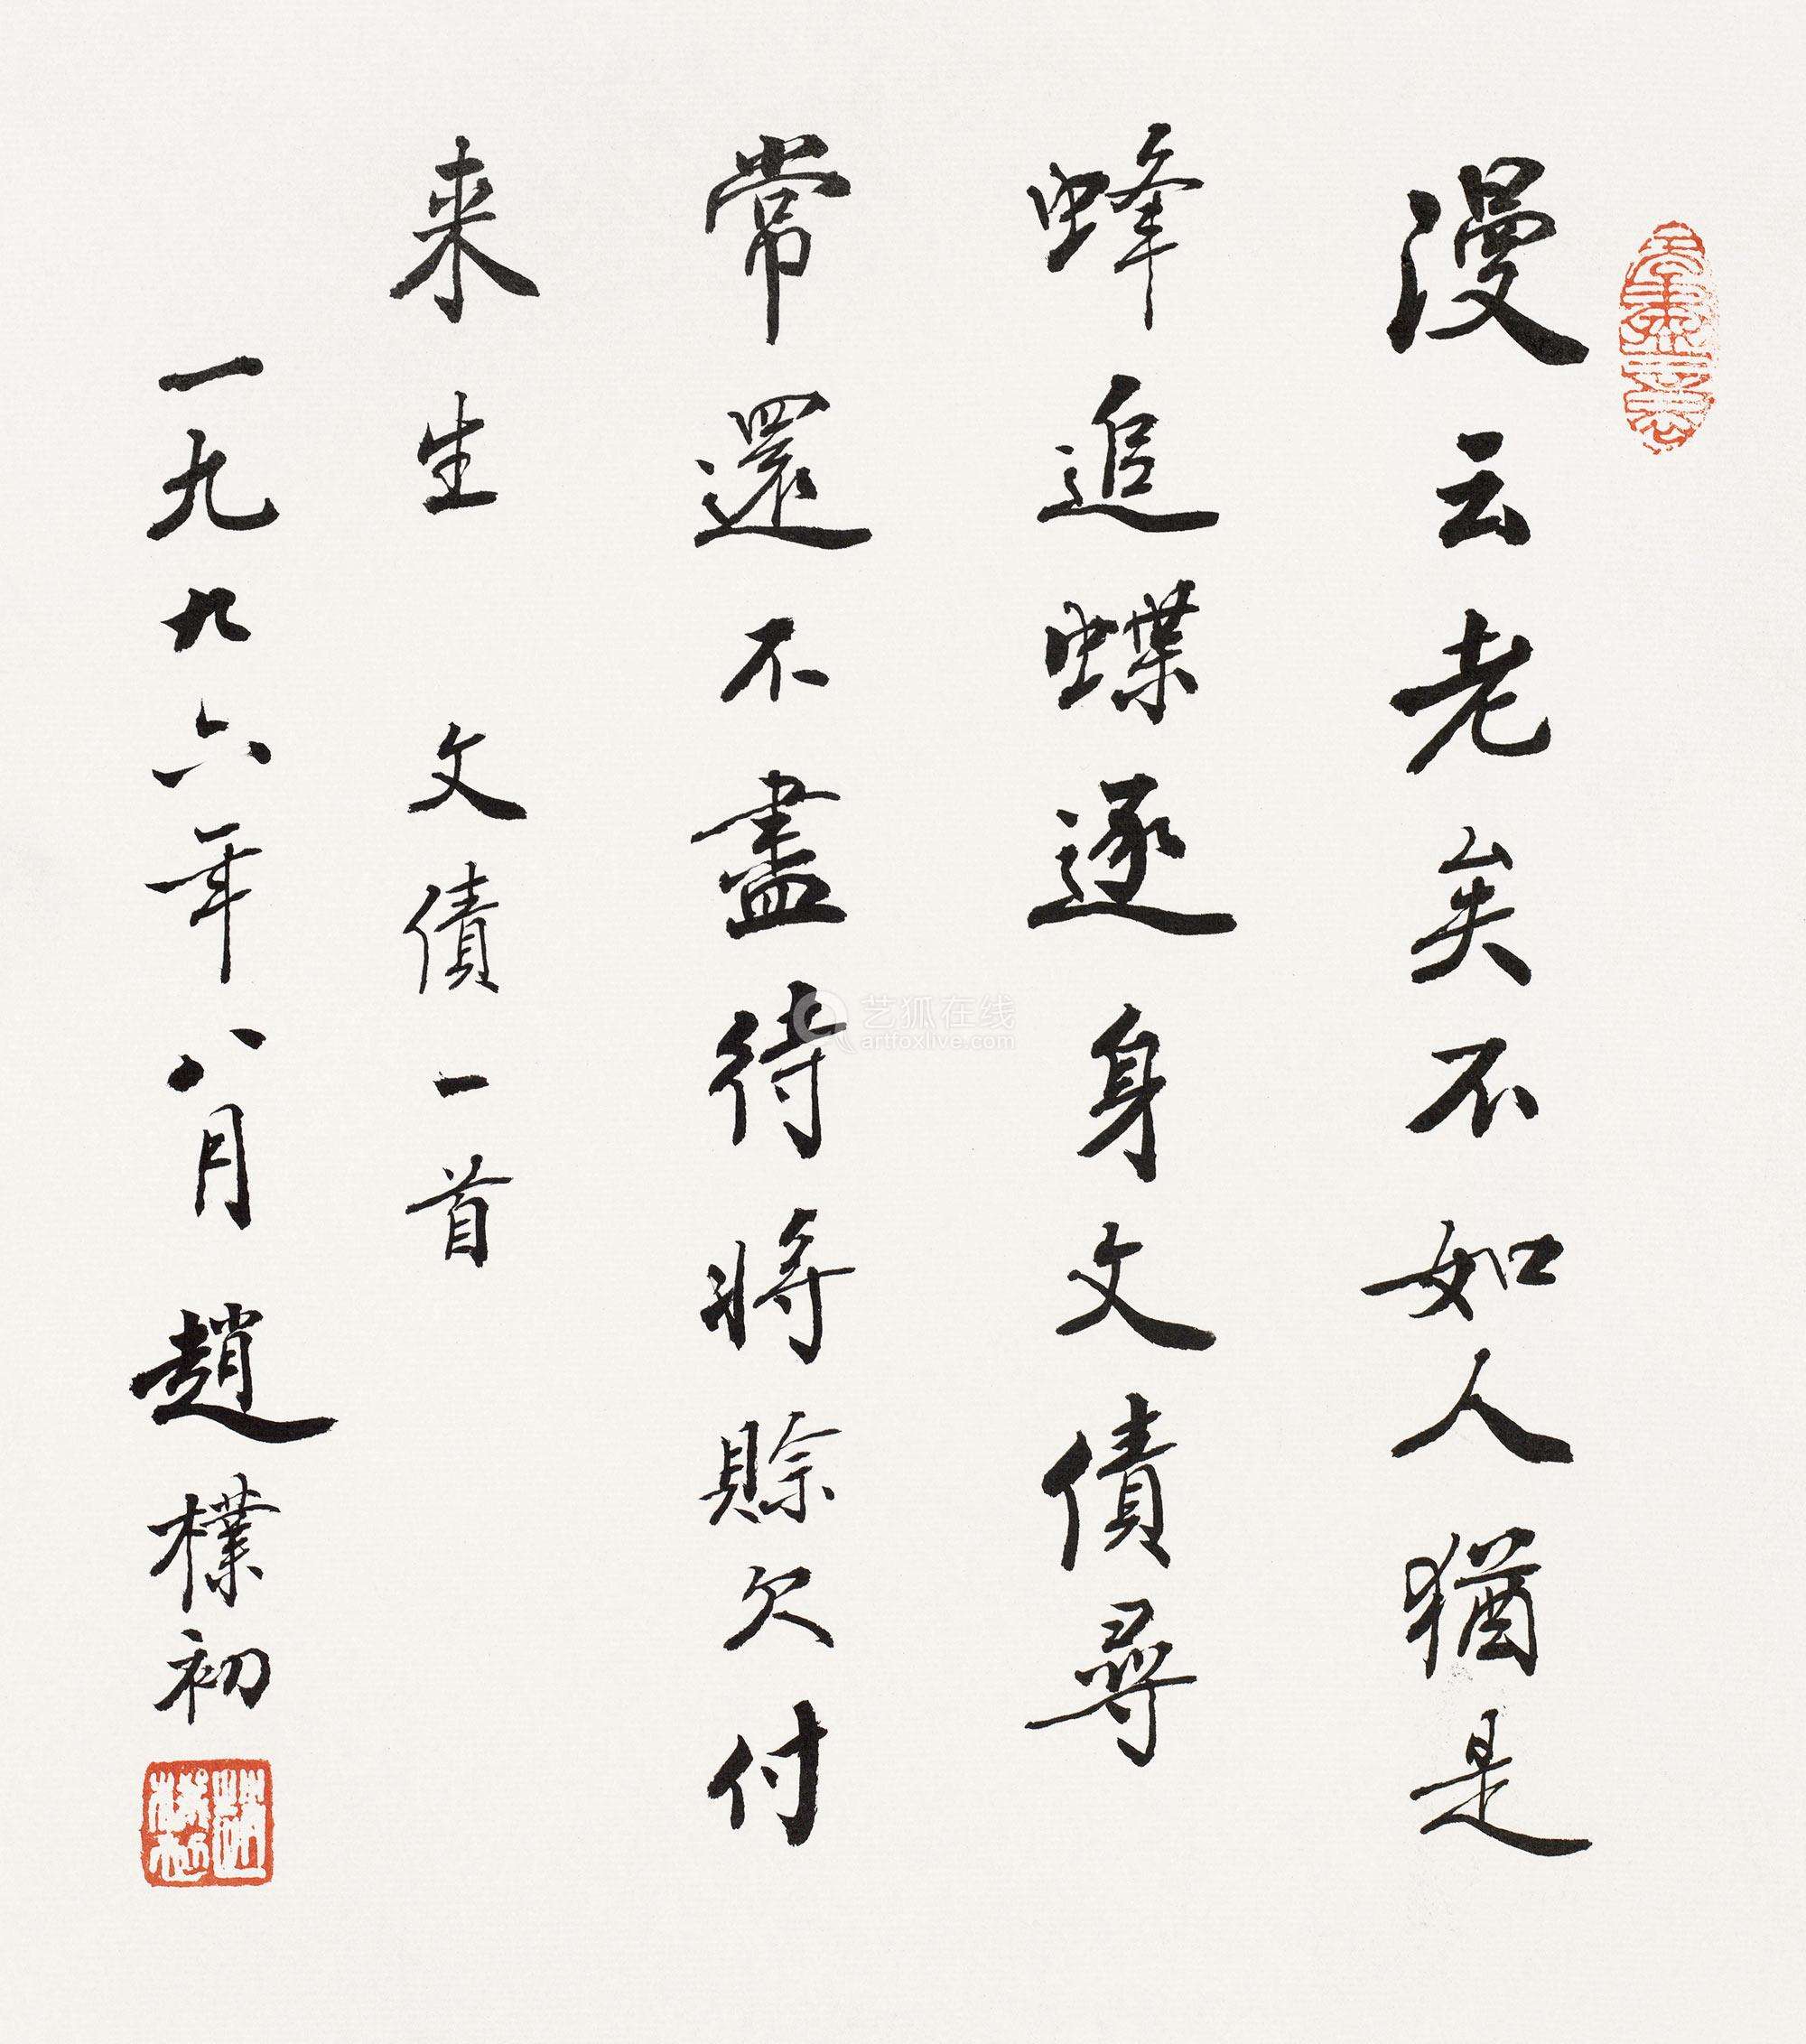 漫云老矣不如人猶是
蜂追蝶逐身文債尋
常還不盡待將賒欠付
来生 文債一首
一九九六年八月趙樸初
趙樸初
艺狐在线
artfoxlive.com